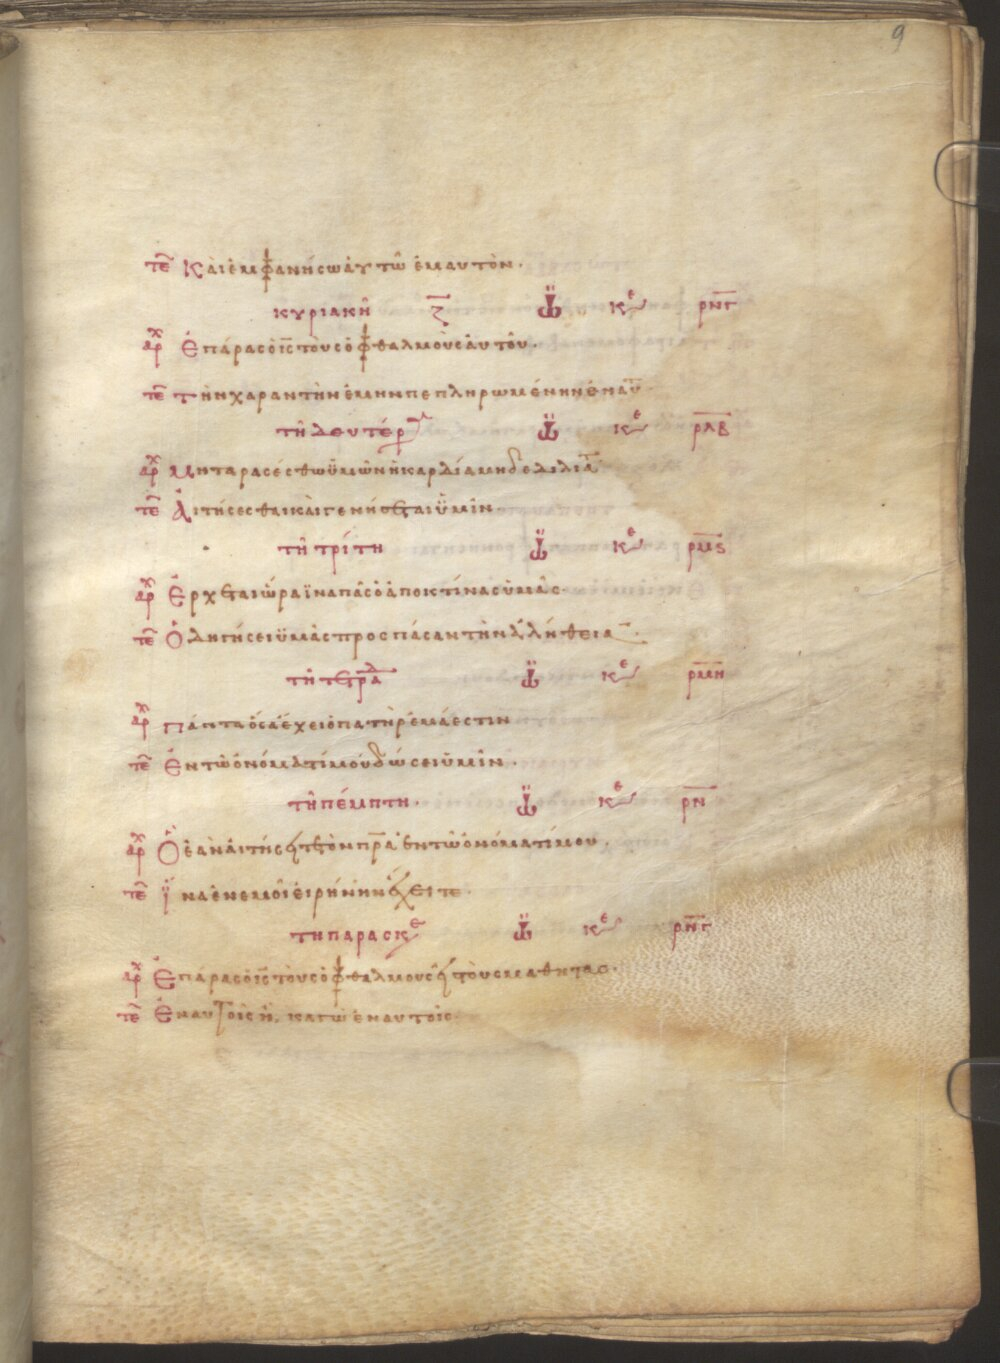 9
τε Και ἐμφανήσω ἀυτῶ ἐμαυτὸν·
κυριακῆ ζ ιω κε ρνγ
αρχ Ἐπάρας ὁ ις τοὺς ὀφθαλμοὺς ἀυτοῦ·
τε τὴν χαραν τὴν ἐμην πεπληρωμένην ἐν αυ
τῆ δευτέρ ιω κε ρλβ
αρχ Μη ταρασέσθω ϋμῶν ἡ καρδία μηδε διλια
τε Ἀιτήσεσθαι κὰι γενήσεται ϋμῖν
τῆ τρίτη ιω κε ρμς
αρχ Ἔρχεται ὥρα ϊνα πᾶς ὁ ἀποκτίνας ϋμᾶς·
τε Ὁδηγήσει ϋμᾶς προς πάσαν τὴν ἀλήθεια
τῆ τετρδα ιω κε ρμη
αρχ Πάντα ὅσα ἔχει ὁ πατὴρ ἐμά εστιν
τε Ἐν τῶ ὀνόματί μου δώσει ϋμῖν·
τῆ πέμπτη· ιω κε ρν
αρχ Ὃ ἐὰν ἀιτήσητε τὸν πρα ἐν τῶ ὀνόματί μου·
τε ϊνα ἐν εμοὶ ἐιρήνην ἔχειτε·
τη παρασκε ιω κε ρνγ
αρχ Ἐπάρας ὁ ις τοὺς ὀφθαλμους ἐις τοὺς μαθητας·
τε Ἐν αυτοῖς ἦ, καγὼ ἐν αυτοις·